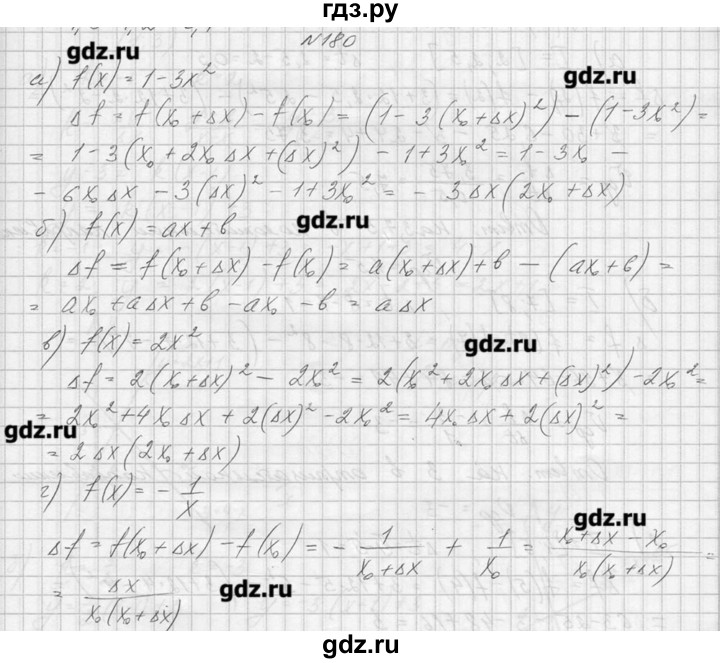 гдз.ру
N180
gdz.ru
а) f(x) = 1-3x²
gdz.ru
Δf = f(x₀+Δx) - f(x₀) = (1-3(x₀+Δx)²) - (1-3x₀²) =
= 1-3(x₀+2x₀Δx+(Δx)²) - 1+3x₀² = 1-3x₀ -
- 6x₀Δx - 3(Δx)² - 1+3x₀² = - 3Δx(2x₀+Δx)
gdz.ru
б) f(x) = ax+в
Δf = f(x₀+Δx) - f(x₀) = a(x₀+Δx)+в - (ax₀+в) =
= ax₀+aΔx+в-ax₀-в = aΔx
в) f(x) = 2x²
gdz.ru
Δf = 2(x₀+Δx)² - 2x₀² = 2(x₀²+2x₀Δx+(Δx)²) - 2x₀² =
= 2x₀²+4x₀Δx+2(Δx)²-2x₀² = 4x₀Δx+2(Δx)² =
gdz.ru
= 2Δx(2x₀+Δx)
г) f(x) = - 1/x
gdz.ru
Δf = f(x₀+Δx) - f(x₀) = - 1/(x₀+Δx) + 1/x₀ = (x₀+Δx-x₀)/(x₀(x₀+Δx)) =
= Δx/(x₀(x₀+Δx))
gdz.ru
gdz.ru